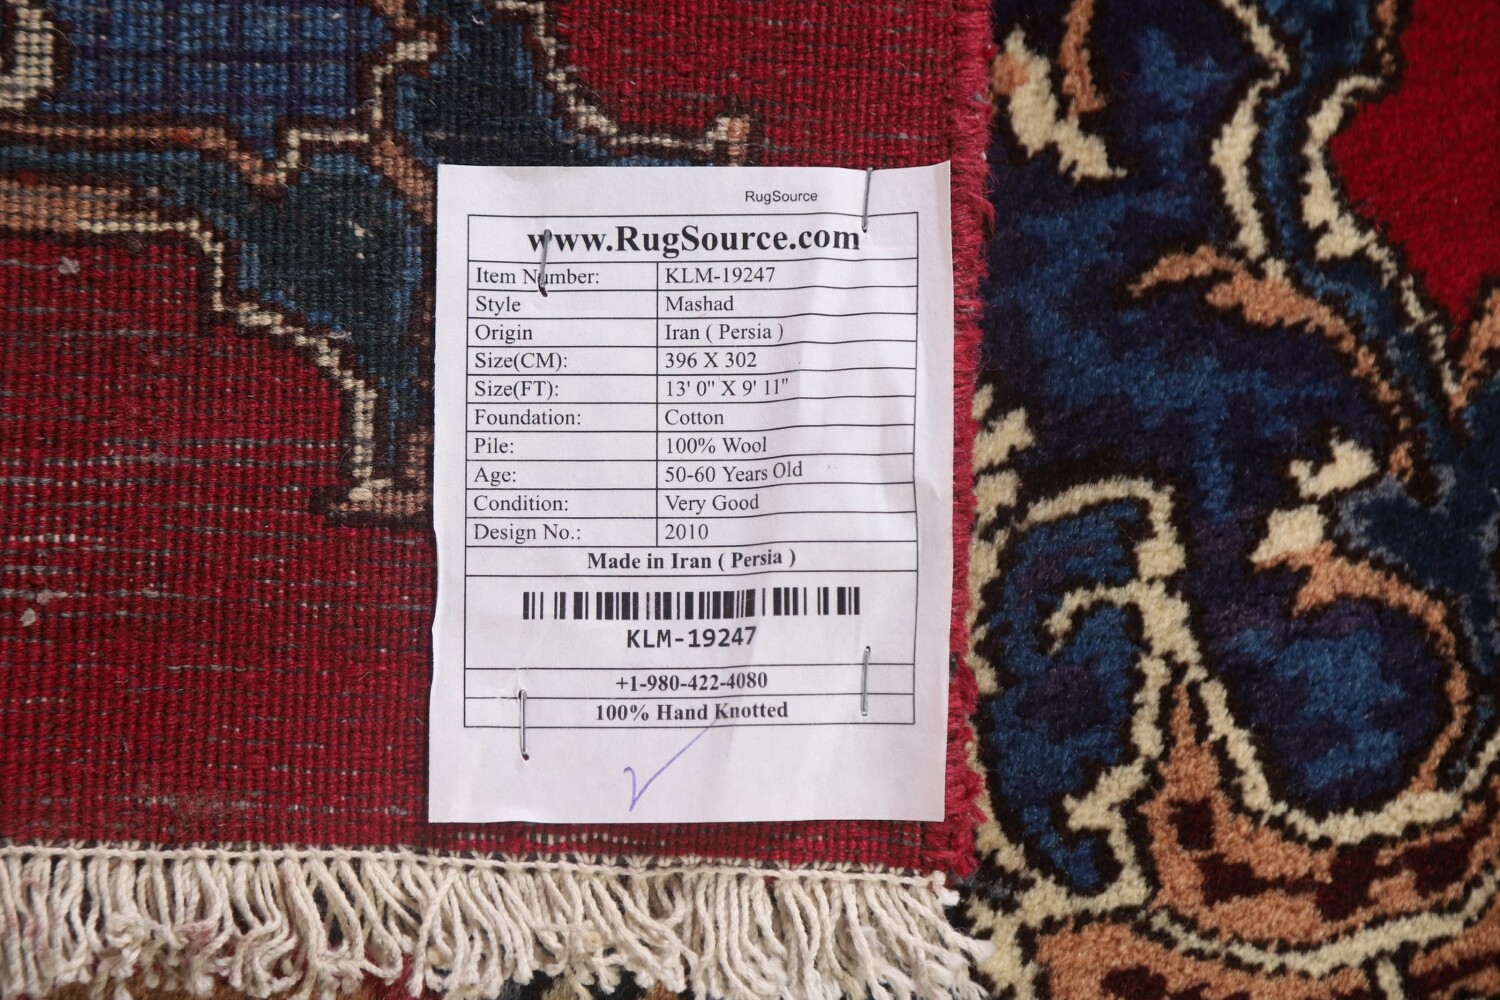 RugSource
www.RugSource.com
Item Number: KLM-19247
Style Mashad
Origin Iran ( Persia )
Size(CM): 396 X 302
Size(FT): 13' 0" X 9' 11"
Foundation: Cotton
Pile: 100% Wool
Age: 50-60 Years Old
Condition: Very Good
Design No.: 2010
Made in Iran ( Persia )
KLM-19247
+1-980-422-4080
100% Hand Knotted